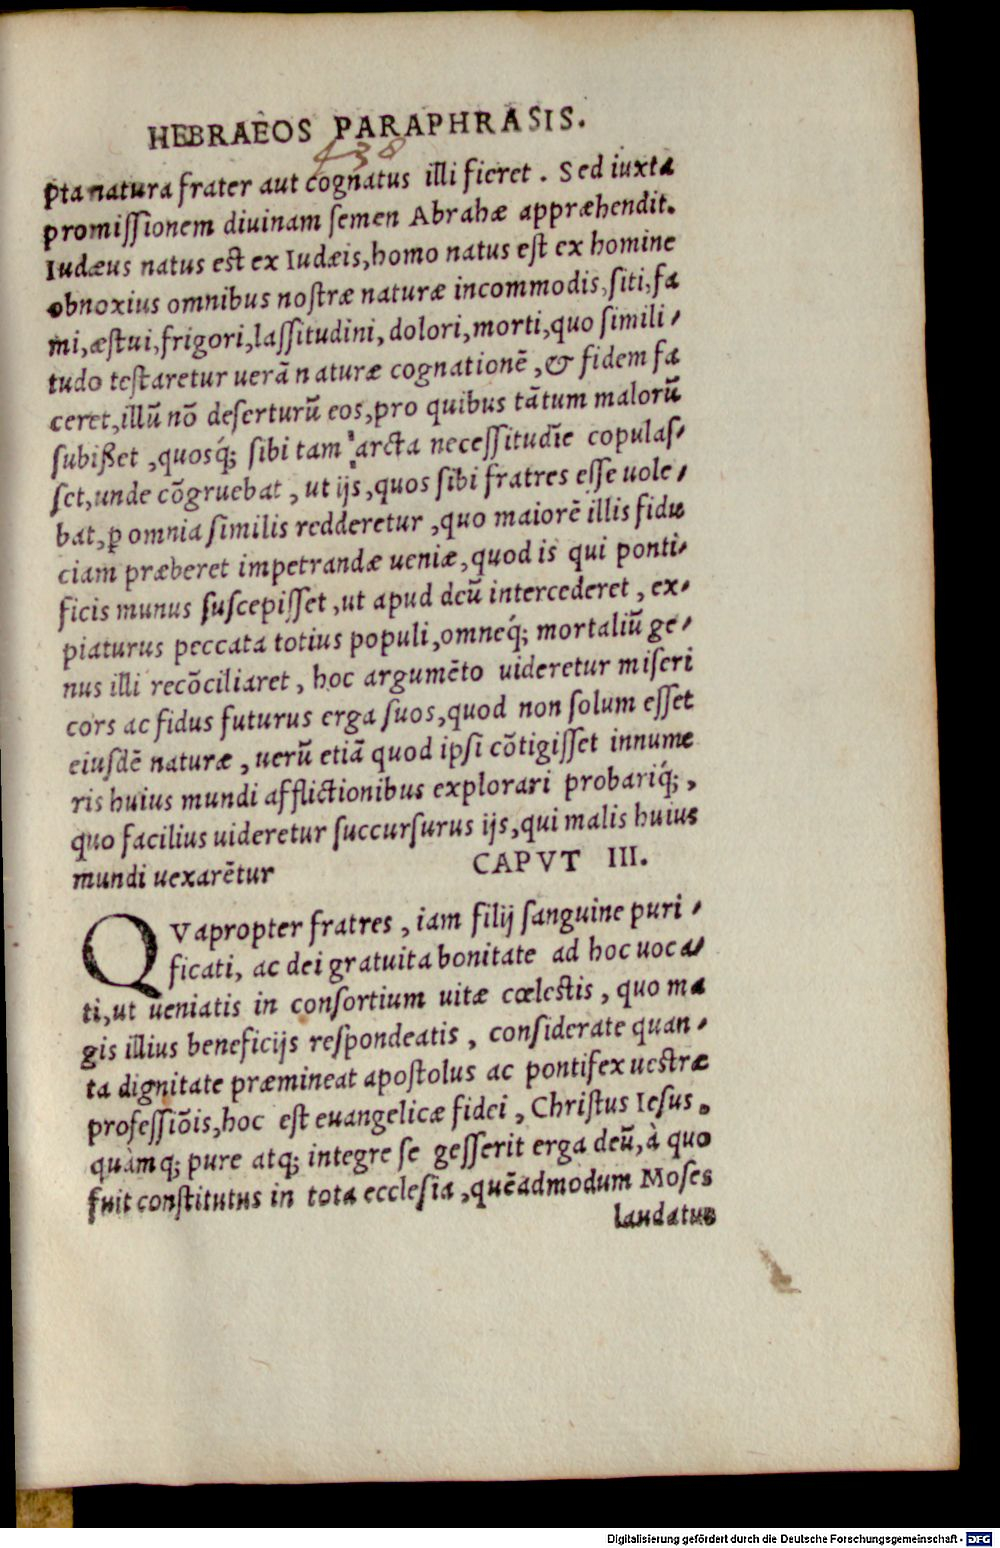 HEBRAEOS PARAPHRASIS.
438
pta natura frater aut cognatus illi fieret. Sed iuxta
promiſſionem diuinam ſemen Abrahæ appræhendit.
Iudæus natus est ex Iudæis, homo natus eſt ex homine
obnoxius omnibus noſtræ naturæ incommodis, ſiti, fa
mi, æſtui, frigori, laſſitudini, dolori, morti, quo ſimili-
tudo teſtaretur uerā naturæ cognationē, & fidem fa
ceret, illū nō deſerturū eos, pro quibus tātum malorū
ſubiſſet, quosq́; ſibi tam arcta neceſſitudīe copulaſ-
ſet, unde cōgruebat, ut ijs, quos ſibi fratres eſſe uole-
bat, ꝑ omnia ſimilis redderetur, quo maiorē illis fidu
ciam præberet impetrandæ ueniæ, quod is qui ponti-
ficis munus ſuſcepiſſet, ut apud deū intercederet, ex-
piaturus peccata totius populi, omneq́; mortaliū ge-
nus illi recōciliaret, hoc argumēto uideretur miſeri
cors ac fidus futurus erga ſuos, quod non ſolum eſſet
eiuſdē naturæ, uerū etiā quod ipſi cōtigiſſet innume
ris huius mundi afflictionibus explorari probariq́;,
quo facilius uideretur ſuccurſurus ijs, qui malis huius
mundi uexarētur CAPVT III.
QVapropter fratres, iam filij ſanguine puri-
ficati, ac dei gratuita bonitate ad hoc uoca-
ti, ut ueniatis in conſortium uitæ cœleſtis, quo ma
gis illius beneficijs reſpondeatis, conſiderate quan-
ta dignitate præmineat apoſtolus ac pontifex ueſtræ
profeſſiōis, hoc eſt euangelicæ fidei, Chriſtus Ieſus.
quàmq; pure atq; integre ſe geſſerit erga deū, à quo
fuit conſtitutus in tota eccleſia, quēadmodum Moſes
laudatus
Digitalisierung gefördert durch die Deutsche Forschungsgemeinschaft - DFG